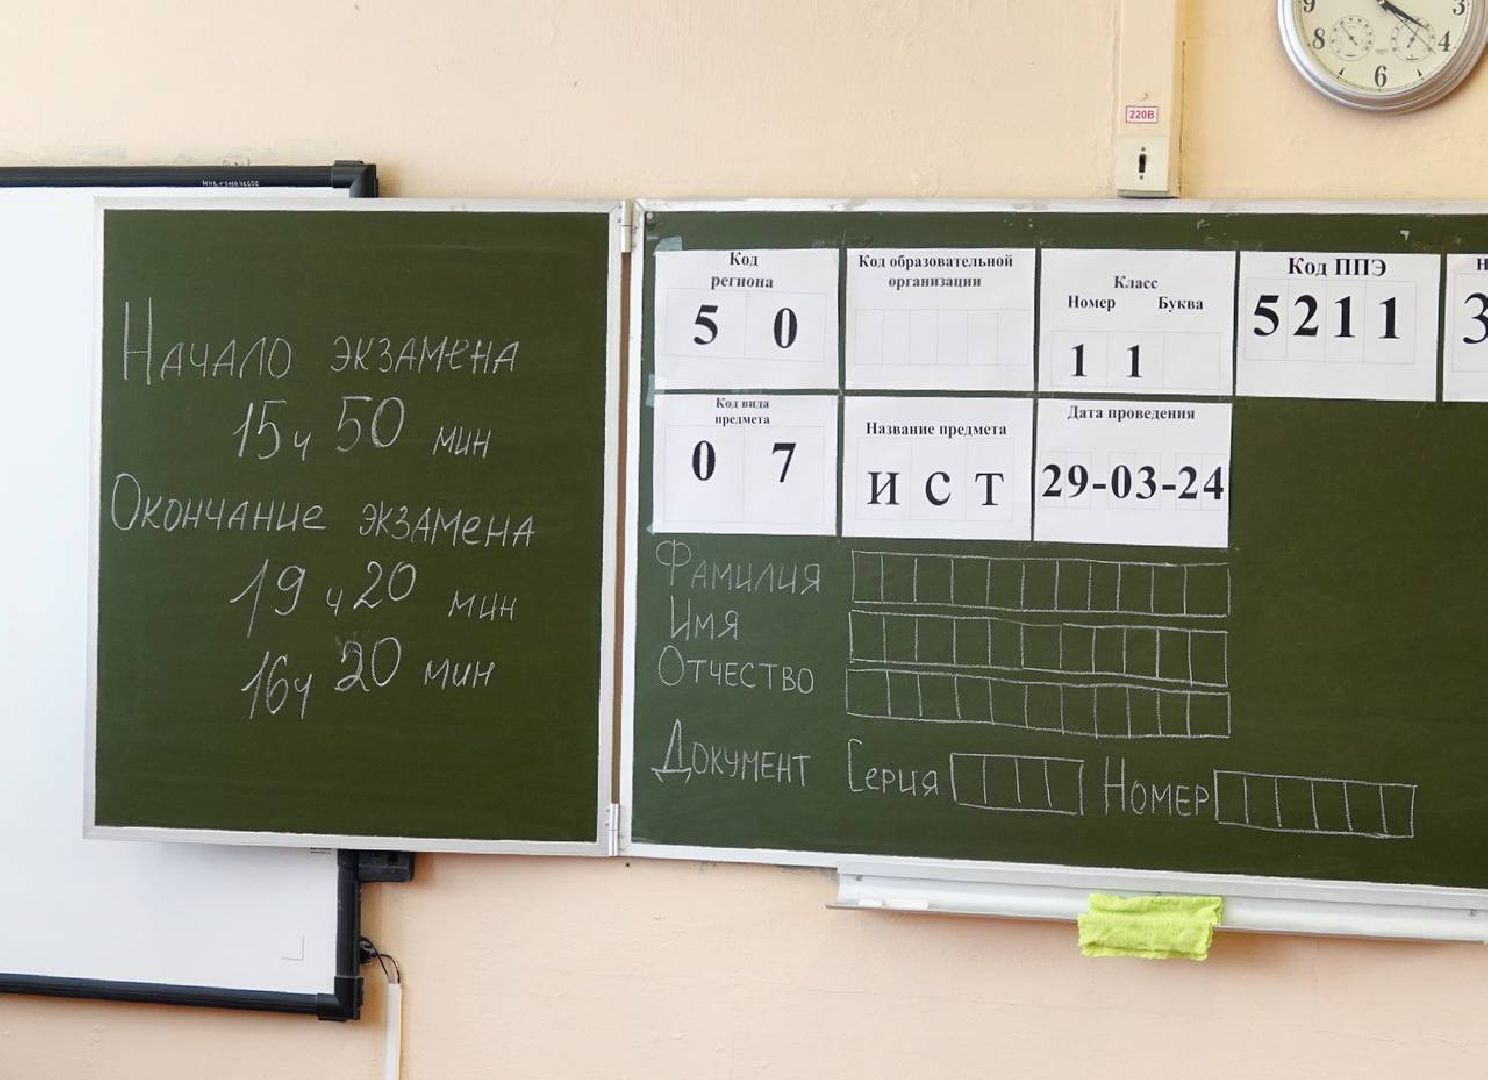 9
3
8
4
6
220В
Начало экзамена
15ч 50 мин
Окончание экзамена
19 ч 20 мин
16ч 20 мин
Код региона
5 0
Код образовательной организации
Класс
Номер Буква
1 1
Код ППЭ
5211
Н
3
Код вида предмета
0 7
Название предмета
И С Т
Дата проведения
29-03-24
Фамилия
Имя
Отчество
Документ Серия Номер